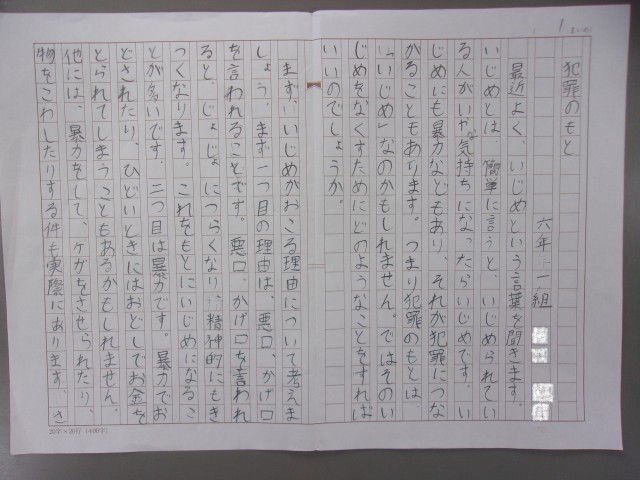 犯罪のもと
六年一組
最近よく、いじめという言葉を聞きます。
いじめとは、簡単に言うと、いじめられてい
る人がいやな気持ちになったらいじめです。い
じめにも暴力などもあり、それが犯罪につな
がることもあります。つまり犯罪のもとは、
「いじめ」なのかもしれません。ではそのい
じめをなくすためにどのようなことをすれば
いいのでしょうか。
まず、いじめがおこる理由について考えま
しょう。まず一つ目の理由は、悪口、かげ口
を言われることです。悪口、かげ口を言われ
ると、じょじょにつらくなり精神的にもき
つくなります。これをもとにいじめになるこ
とが多いです。二つ目は暴力です。暴力でお
どされたり、ひどいときにはおどしでお金を
とられてしまうこともあるかもしれません。
他には、暴力をして、ケガをさせられたり、
物をこわしたりする件も実際にあります。さ
20字×20行(400字)